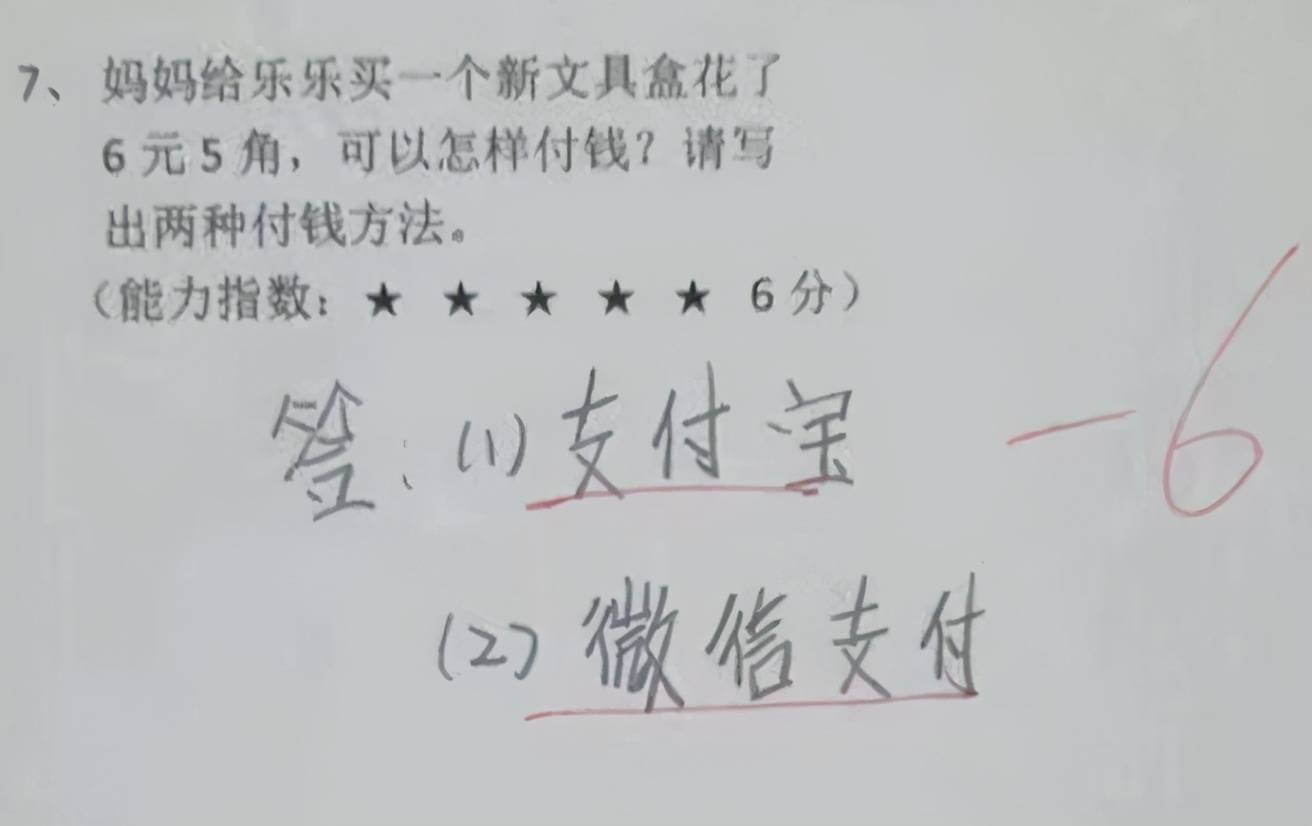 7、妈妈给乐乐买一个新文具盒花了
6元5角，可以怎样付钱？请写
出两种付钱方法。
（能力指数：★ ★ ★ ★ ★ 6分）
答：(1)支付宝
-6
(2)微信支付